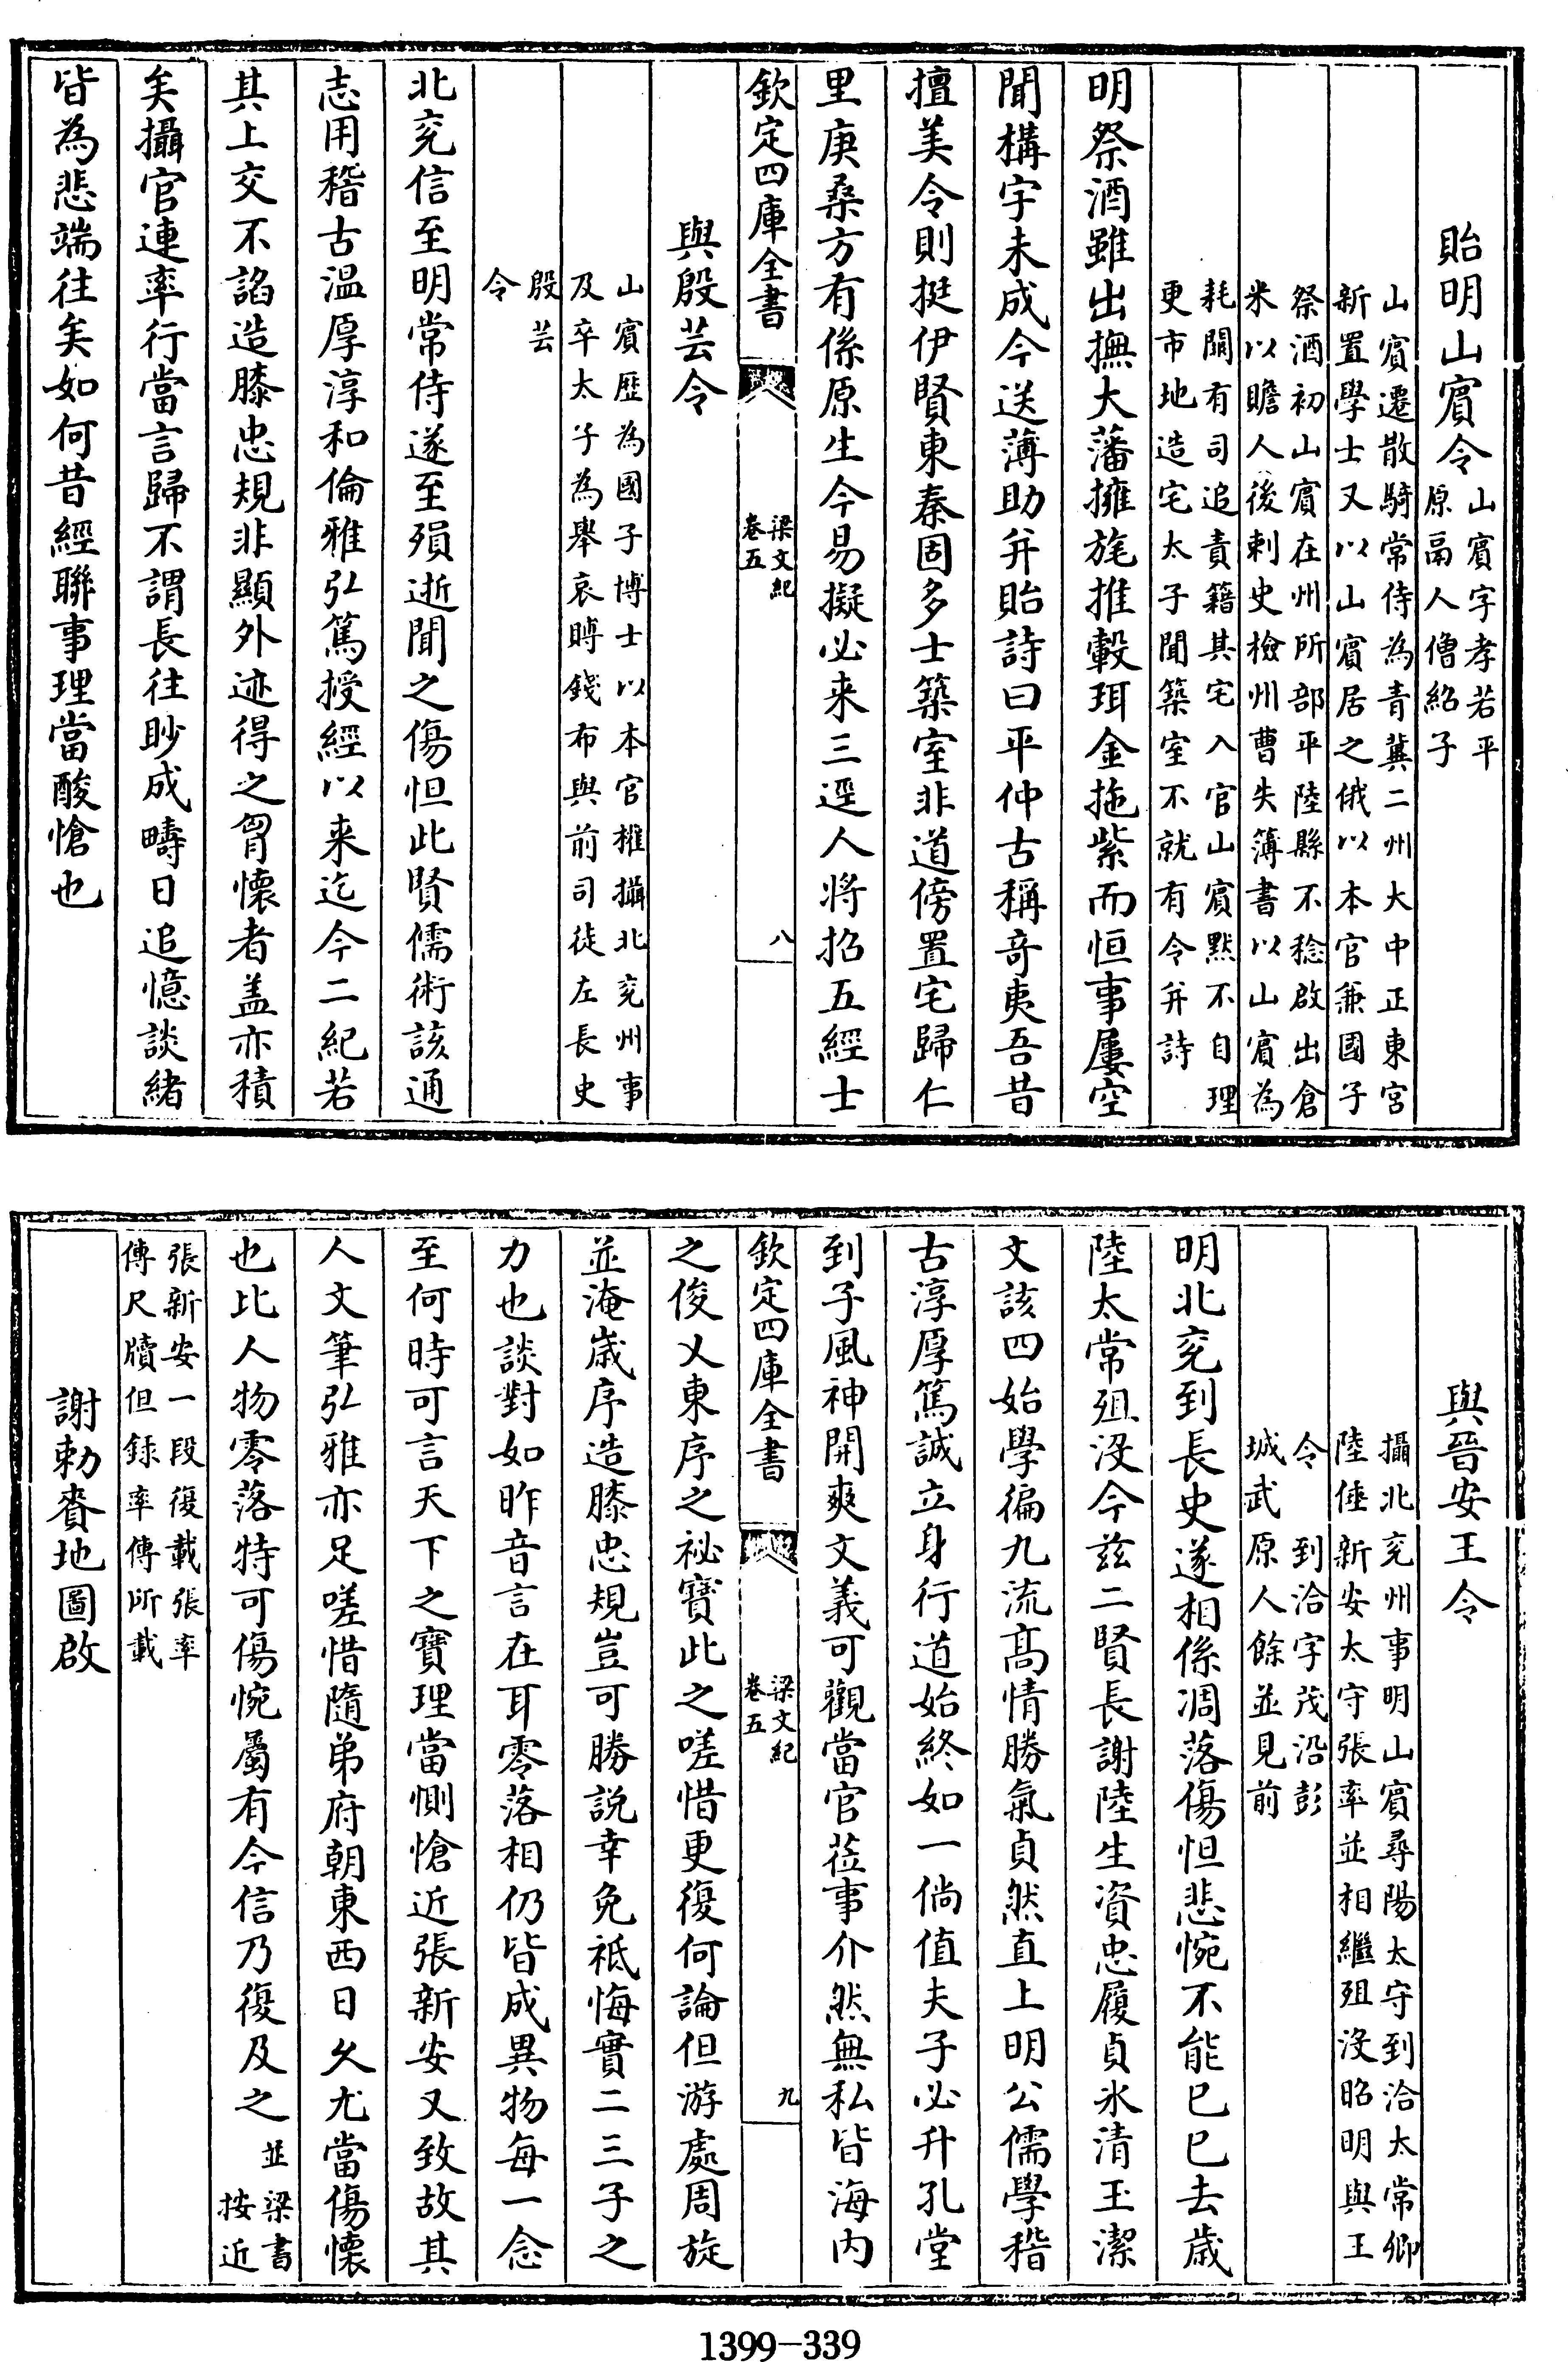 貽明山賓令山賓字孝若平
原鬲人僧紹子
山賓遷散騎常侍為青冀二州大中正東宮
新置學士又以山賓居之俄以本官兼國子
祭酒初山賓在州所部平陸縣不稔啟出倉
米以贍人後刺史檢州曹失簿書以山賓為
耗闕有司追責籍其宅入官山賓默不自理
更市地造宅太子聞築室不就有令并詩
明祭酒雖出撫大藩擁旄推轂珥金拖紫而恒事屢空
聞構宇未成今送薄助并貽詩曰平仲古稱奇夷吾昔
擅美令則挺伊賢東秦固多士築室非道傍置宅歸仁
里庚桑方有係原生今易擬必来三逕人将招五經士
欽定四庫全書
梁文紀
卷五
八
與殷芸令
山賓歷為國子博士以本官權攝北兖州事
及卒太子為舉哀賻錢布與前司徒左長史
殷芸
令
北兖信至明常侍遂至殞逝聞之傷怛此賢儒術該通
志用稽古温厚淳和倫雅弘篤授經以来迄今二紀若
其上交不諂造膝忠規非顯外迹得之胷懷者盖亦積
矣攝官連率行當言歸不謂長往眇成疇日追憶談緒
皆為悲端往矣如何昔經聯事理當酸愴也
與晉安王令
攝北兖州事明山賓尋陽太守到洽太常卿
陸倕新安太守張率並相繼殂沒昭明與王
令 到洽字茂㳂彭
城武原人餘並見前
明北兖到長史遂相係凋落傷怛悲惋不能已已去歲
陸太常殂沒今兹二賢長謝陸生資忠履貞氷清玉潔
文該四始學徧九流髙情勝氣貞然直上明公儒學稽
古淳厚篤誠立身行道始終如一倘值夫子必升孔堂
到子風神開爽文義可觀當官莅事介然無私皆海内
欽定四庫全書
梁文紀
卷五
九
之俊乂東序之祕寶此之嗟惜更復何論但游處周旋
並淹歲序造膝忠規豈可勝説幸免祗悔實二三子之
力也談對如昨音言在耳零落相仍皆成異物每一念
至何時可言天下之寶理當惻愴近張新安又致故其
人文筆弘雅亦足嗟惜隨弟府朝東西日久尤當傷懷
也比人物零落特可傷惋屬有今信乃復及之並梁書
按近
張新安一段復載張率
傳尺牘但録率傳所載
謝勅賚地圖啟
1399-339